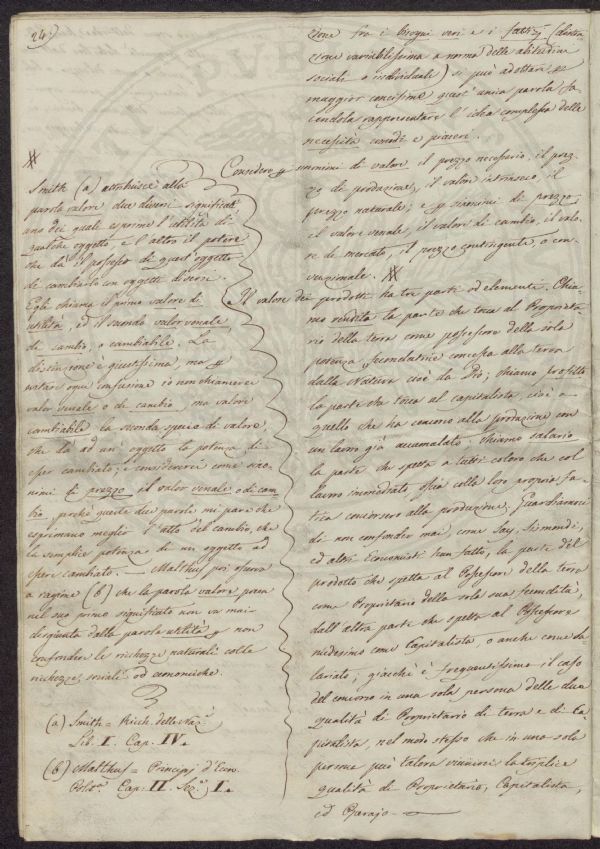 24)
zione fra i bisogni veri e i fattizj (distin
zione variabilissima a norma delle abitudini
sociali o individuali) si può adottare p
maggior concisione quest' unica parola fa
cendola rappresentare l' idea complessa delle
necessità comodi e piaceri.
Considero p sinonimi di valore il prezzo necessario, il prez
zo di produzione, il valore intrinseco, il
prezzo naturale; e p sinonimi di prezzo
il valore venale, il valore di cambio, il valo
re di mercato, il prezzo contingente, o con
venzionale. #
Il valore dei prodotti ha tre parti od elementi. Chia
mo rendita la parte che toca al Proprieta
rio della terra come possessore della sola
potenza fecondatrice concessa alla terra
dalla Natura cioè da Dio; chiamo profitto
la parte che toca al capitalista, cioè a
quello che ha concorso alla produzione con
un lavoro già accumulato; chiamo salario
la parte che spetta a tutti coloro che col
lavoro immediato ossia colle loro proprie fa
tica concorsero alla produzione. Guardiamoci
di non confonder mai, come Say, Sismondi,
ed altri Economisti han fatto, la parte del
prodotto che spetta al Possessore della terra
come Proprietario della sola sua fecondità,
dall' altra parte che spetta al Possessore
medesimo come Capitalista, o anche come Sa
lariato; giacchè è frequentissimo il caso
del concorso in una sola persona delle due
qualità di Proprietario di terra e di Ca
pitalista, nel modo stesso che in una sola
persona può talora riunirsi la triplice
qualità di Proprietario, Capitalista,
ed Operajo.
#
Smith (a) attribuisce alla
parola valore due diversi significati
uno dei quali esprime l' utilità di
qualche oggetto, e l' altro il potere
che dà il possesso di quest' oggetto
di cambiarlo con oggetti diversi.
Egli chiama il primo valore di
utilità, ed il secondo valor venale
di cambio, o cambiabile. La
distinzione è giustissima, ma p
evitare ogni confusione io non chiamerei
valor venale o di cambio, ma valore
cambiabile la seconda specie di valore,
che dà ad un' oggetto la potenza di
esser cambiato; e considererei come sino
nimi di prezzo il valor venale o di cam
bio, perchè queste due parole mi pare che
esprimano meglio l' atto del cambio, che
la semplice potenza di un oggetto ad
essere cambiato. — Malthus poi osserva
a ragione (b) che la parola valore presa
nel suo primo significato non va mai
disgiunta dalla parola utilità p non
confonder le richezze naturali colle
richezze sociali od economiche.
(a) Smith = Rich. delle Naz.
Lib. I. Cap. IV.
(b) Malthus = Principj d' Econ.
Polit.a Cap. II. Sez. I.